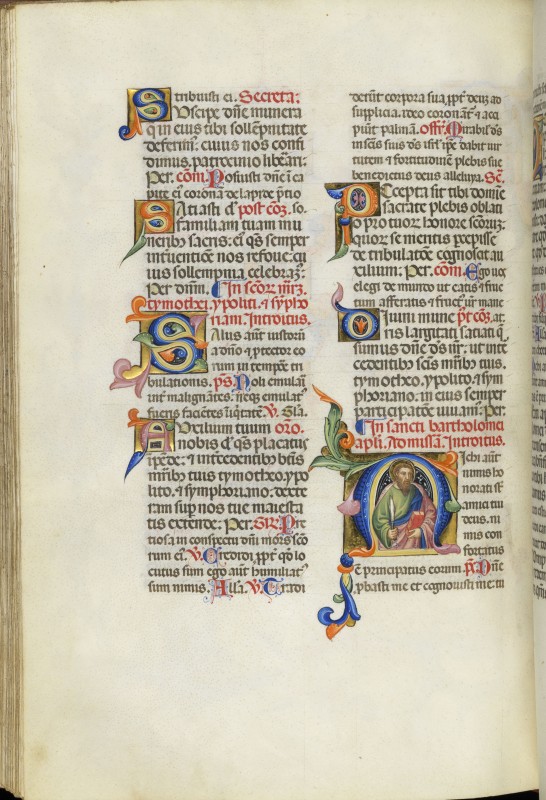 tribuisti ei. Secreta:
Suscipe dñe munera
q̃ in eius tibi sollẽpnitate
deferim̃. cuius nos confi
dimus, patrocinio libẽari:
Per. cõm. Posuisti dñe ĩ ca
pite ei coronã de lapide p̃tio
Satiasti d̃ post cõ. so.
familiam tuam mu
nerib; sacris: ei q̃s semper
ĩnteruentiõe nos refoue: cu
ius sollempnia celebram;:
Per dñm. In scõr mr̃.
tymothei. ypoliti. & sympho
riani. Introitus.
Salus aũt iustorũ
a dño & ptector eo
rum in tempe tri
bulationis. p̃s. Noli emulari
ĩ malignãtes. neq; emulat̃
fueris faciẽtes iiq̃tatẽ. V. Gla.
Auxilium tuum oro.
nobis d̃ q̃s placatus
ĩpẽde: & intercedẽtib; btĩs
mr̃ib; tuis tymotheo. ypo
lito. & symphoriano: dexte
ram sup nos tue maiesta
tis extende: Per. GR̃. P̃tio
sa in conspectu dñi mors scõ
rum ei. V. Credidi, ppt̃ qd̃ lo
cutus sum ego aut humiliat̃
sum nimis. Alla. V. Tradi
derũt corpora sua, ppt̃ deuz ad
supplicia. ideo coronãt̃ & aca
piũt palmã. Off̃. Mirabil d̃s
in scẽis suis d̃s isr̃l ip̃e dabit uir
tutem & fortitudinẽ plebis sue
benedictus deus alleluya. Sẽc.
Accepta sit tibi domine
sacrate plebis oblati
o pro tuor honore scõrum:
quor se meritis percepisse
de tribulatõe cognoscat au
xilium: Per. cõm. Ego uos
elegi de mundo ut eatis & fruc
tum afferatis & fruct̃ ur̃ mane
Diuini mune p̃t cõ. at.
ris largitati saciati q̃
sumus dñe d̃s nr̃: ut inte
cedentib; scĩs mr̃ib; tuis.
tymotheo. ypolito. & sym
phoriano. in eius semper
participatẽe uiuam;. Per.
In sancti bartholomei
apl̃i. Ad missã. Introitus.
Michi aũt
nimis ho
norati st̃
amici tui
deus. ni
mis con
fortatus
ẽ principatus eorum. p̃s. Dñe
pbasti me et cognouisti me: tu